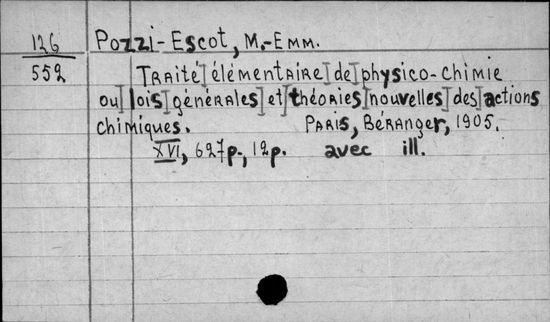 126 Pozzi-Escot, M.-Emm.
552 Traité élémentaire de physico-chimie
ou lois générales et théories nouvelles des actions
chimiques. Paris, Béranger, 1905.
XVI, 627p., 12p. avec ill.